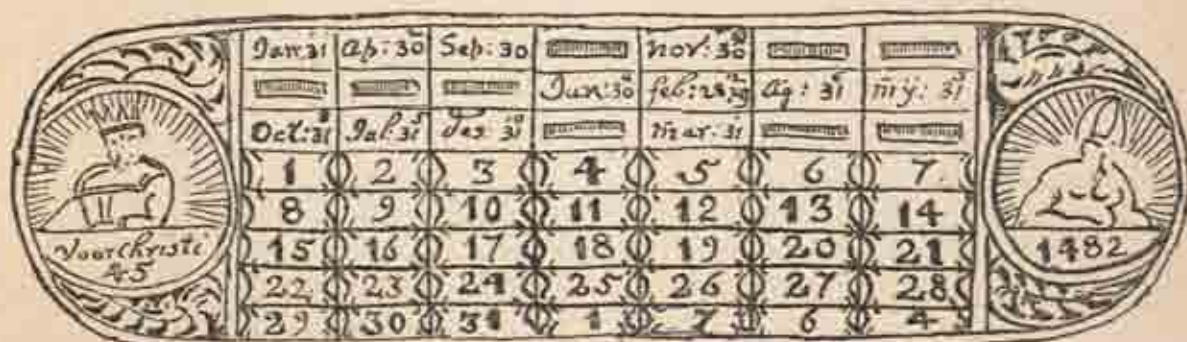 Jan: 31 Ap: 30 Sep: 30 Nov: 30
Jun: 30 feb: 28 29 Ag: 31 my: 31
Oct: 31 Jul: 31 Des 31 Mar: 31
1 2 3 4 5 6 7
8 9 10 11 12 13 14
15 16 17 18 19 20 21
22 23 24 25 26 27 28
29 30 31 1 7 6 4
Voor Christi
45
1482